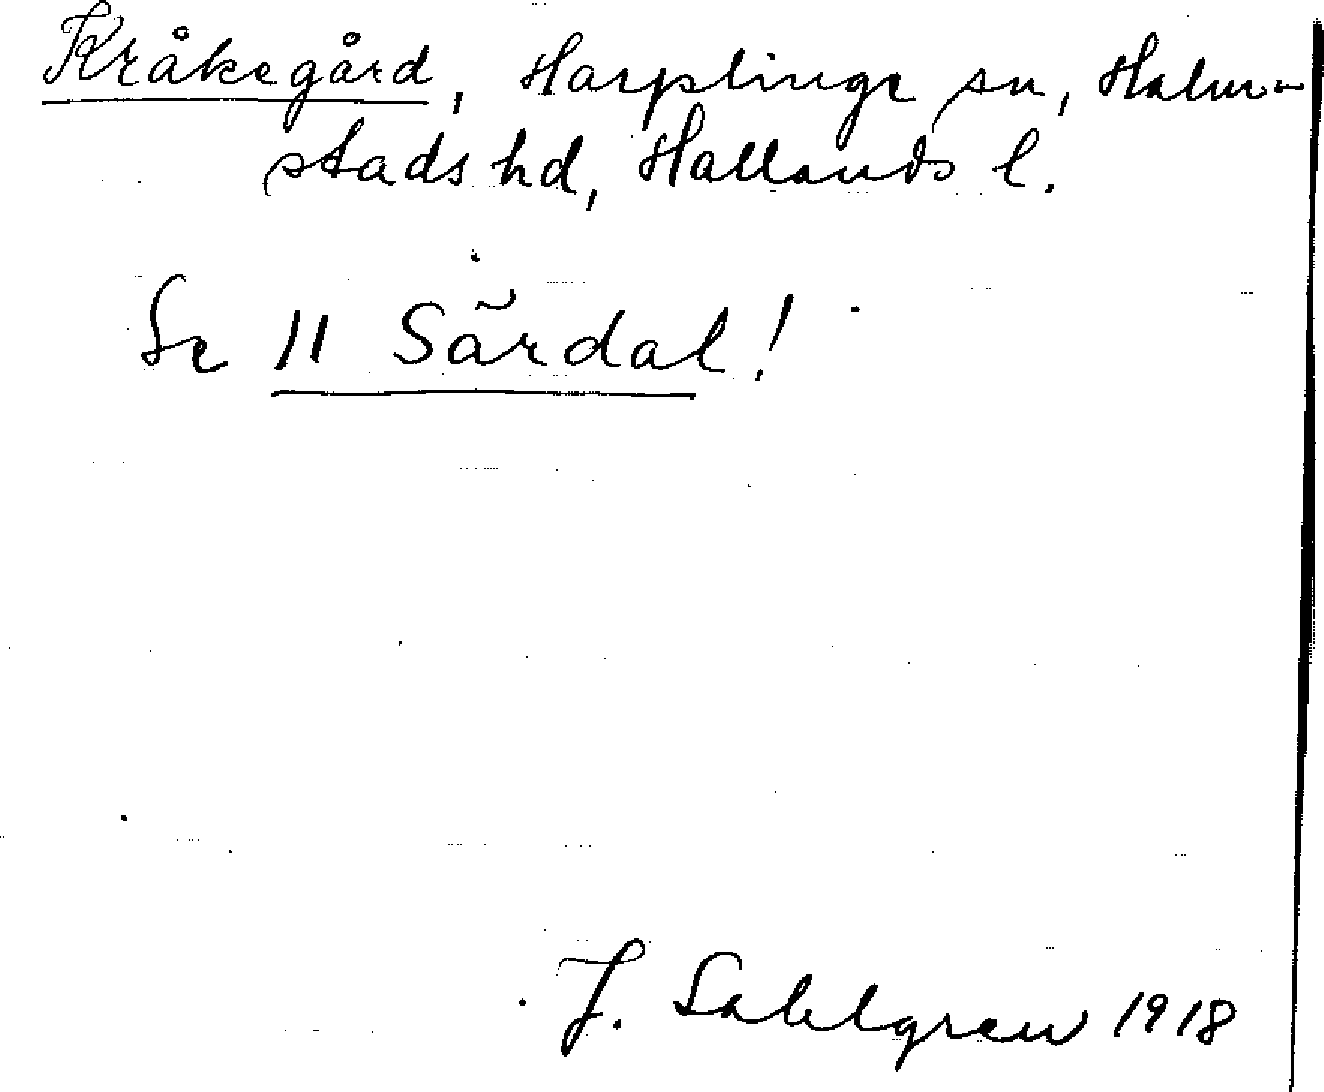 Kråkegård, Harplinge sn, Halm-
stads hd, Hallands l.
Se 11 Särdal!
J. Sahlgren 1918